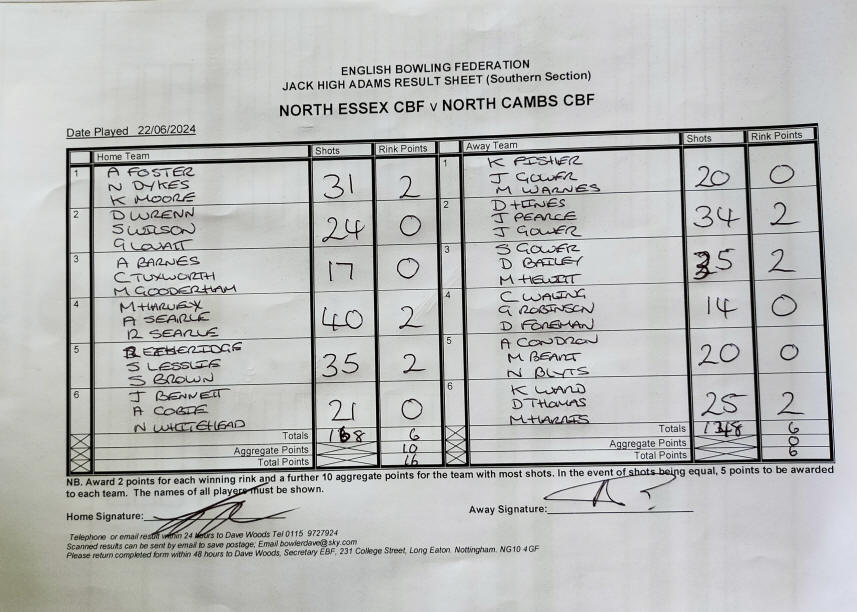 ENGLISH BOWLING FEDERATION
JACK HIGH ADAMS RESULT SHEET (Southern Section)
NORTH ESSEX CBF v NORTH CAMBS CBF
Date Played 22/06/2024
Home Team Shots Rink Points Away Team Shots Rink Points
1 A FOSTER 1 K FISHER
N DYKES 31 2 J GOWER 20 0
K MOORE M WARNES
2 D WRENN 2 D HINES
S WILSON 24 0 J PEARCE 34 2
G LOVATT J GOWER
3 A BARNES 3 S GOWER
C TUXWORTH 17 0 D BAILEY 35 2
M GOODERHAM M HEWITT
4 M HARVEY 4 C WALING
A SEARLE 40 2 G ROBINSON 14 0
R SEARLE D FOREMAN
5 R ETHERIDGE 5 A CONDRON
S LESSLIE 35 2 M BEART 20 0
S BROWN N BLYTS
6 J BENNETT 6 K WARD
A COBIE 21 0 D THOMAS 25 2
N WHITEHEAD M HARRIS
Totals 168 6 Totals 148 6
Aggregate Points 10 Aggregate Points 0
Total Points 16 Total Points 6
NB. Award 2 points for each winning rink and a further 10 aggregate points for the team with most shots. In the event of shots being equal, 5 points to be awarded
to each team. The names of all players must be shown.
Home Signature: Away Signature:
Telephone or email result within 24 hours to Dave Woods Tel 0115 9727924
Scanned results can be sent by email to save postage; Email bowlerdave@sky.com
Please return completed form within 48 hours to Dave Woods, Secretary EBF, 231 College Street, Long Eaton. Nottingham. NG10 4GF